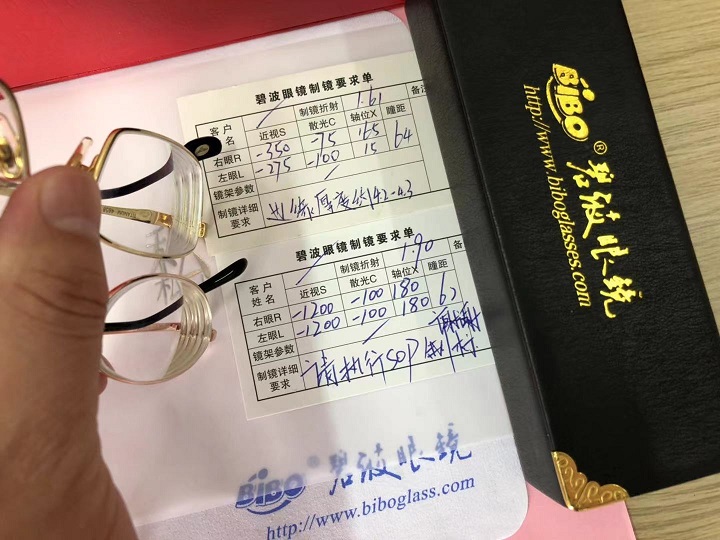 碧波眼镜制镜要求单
客户
名
制镜折射
1.61
备注
近视S
散光C
轴位X
瞳距
右眼R
-350
-75
165
64
左眼L
-275
-100
15
镜架参数
制镜详细
要求
边缘厚度约4.2-4.3
碧波眼镜制镜要求单
客户
姓名
制镜折射
1.90
备
近视S
散光C
轴位X
瞳距
右眼R
-1200
-100
180
63
左眼L
-1200
-100
180
镜架参数
谢谢
制镜详细
要求
请执行SOP
BiBO® 碧波眼镜
http://www.biboglass.com
BiBO® 碧波眼镜
http://www.biboglasses.com